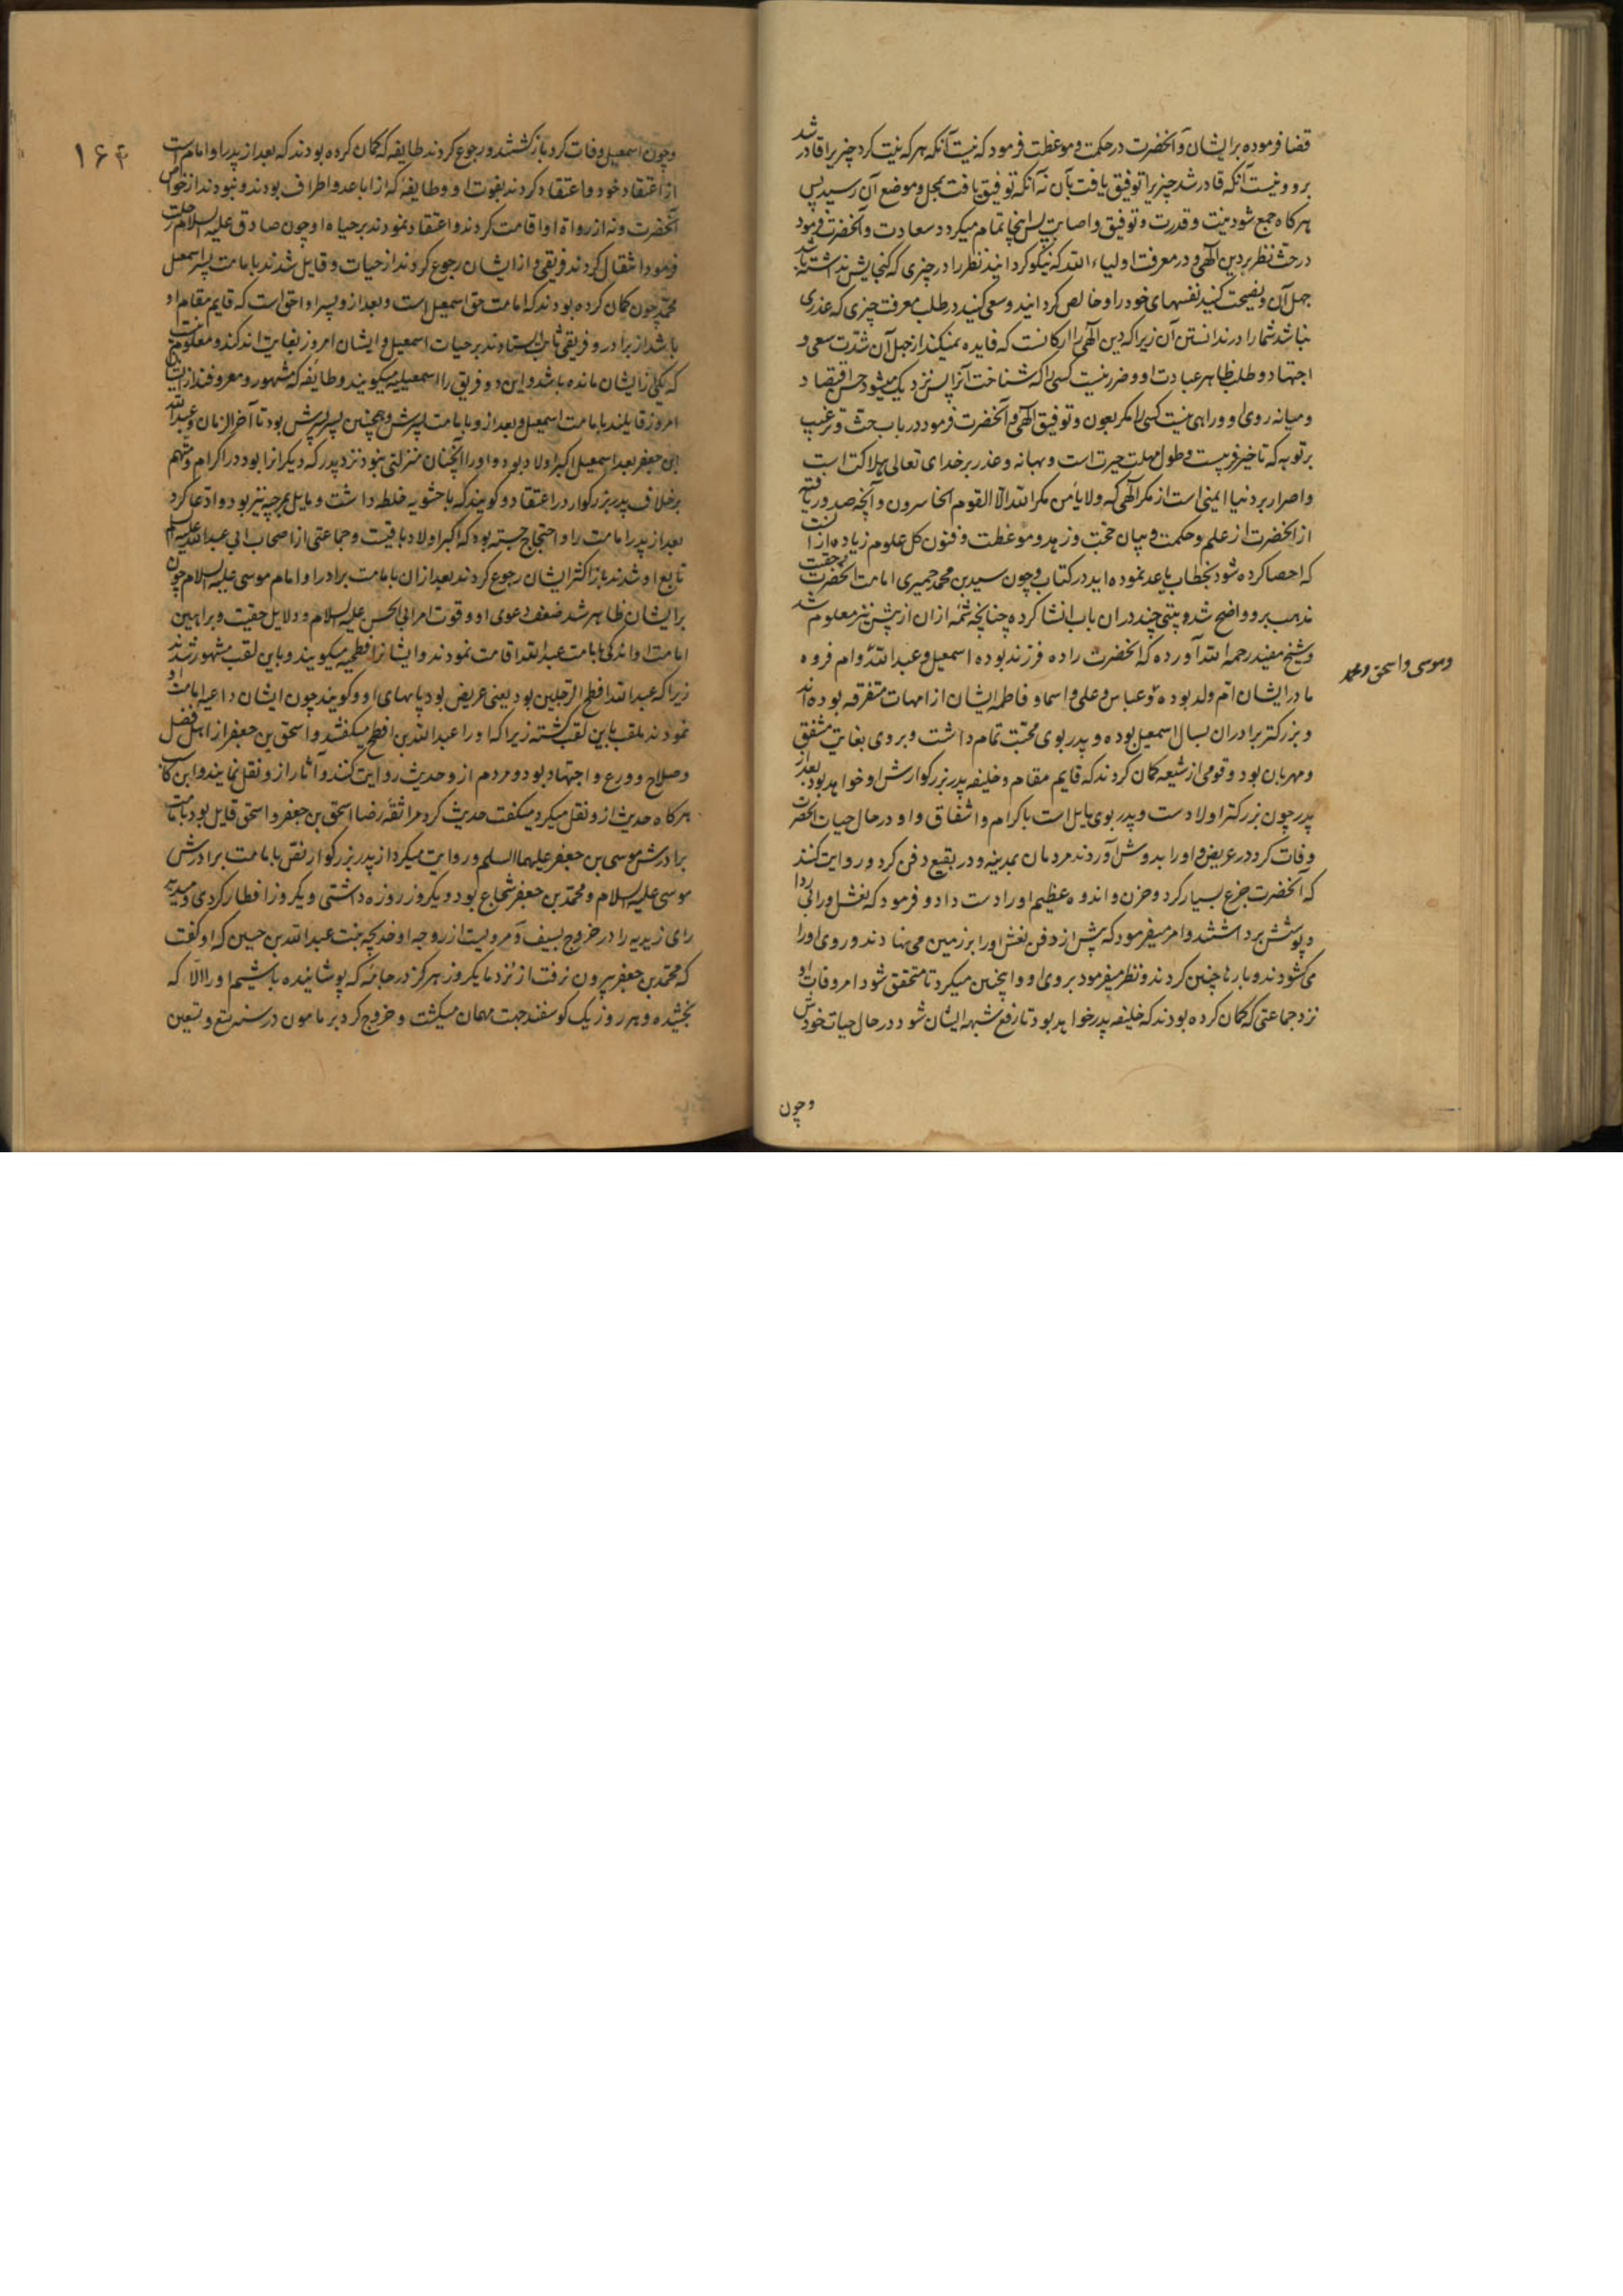 قضا فرموده برایشان و آنحضرت در حکمت و موعظت فرمود که نیست آنکه هر که نیت کرد چیزیرا قادر شد
برو و نیست آنکه قادر شد چیزیرا توفیق یافت بآن نه آنکه توفیق یافت بمحل و موضع آن رسید پس
هر کاه جمع شود نیت و قدرت و توفیق و اصابت پس اینجا تمام میکردد سعادت و آنحضرت فرمود
در حث نظر بر دین آلهی و در معرفت اولیاء الله که نیکو کردانید نظر را در چیزی که کنجایش نداشته باشد
جهل آن و نصیحت کنید نفسهای خود را و خالص کردانید و سعی کنید در طلب معرفت چیزی که عذری
نباشد شما را در ندانستن آن زیرا که دین آلهی را ارکانست که فایده نمیکند از جهل آن شدت سعی و
اجتهاد و طلب ظاهر عبادت او و ضرر نیست کسی را که شناخت آنرا پس نزدیک میشود حسن اقتصاد
و میانه روی او و راهی نیست کسی را مکر بعون و توفیق آلهی و آنحضرت فرمود در باب حث و ترغیب
بر توبه که تاخیر فریبست و طول مهلت حیرت است و بهانه و عذر بر خدای تعالی هلاکت است
و اصرار بر دنیا ایمنی است از مکر آلهی که ولا یامن مکر الله الا القوم الخاسرون و آنچه صدور یافته
از آنحضرت از علم و حکمت و بیان حجت و زهد و موعظت و فنون کل علوم زیاده از آنست
که احصا کرده شود بخطاب یا عد نموده اید در کتاب و چون سید بن محمد حمیری امامت آنحضرت و حقیت
مذهب برو واضح شد و بیتی چند در ان باب انشا کرده چنانچه شمه ازان از پیش نیز معلوم شد
و شیخ مفید رحمه الله آورده که آنحضرت را ده فرزند بوده اسمعیل و عبد الله و ام فروه
و موسی و اسحق و محمد
مادر ایشان ام ولد بوده و عباس و علی و اسما و فاطمه ایشان از امهات متفرقه بوده اند
و بزرکتر برادران بسال اسمعیل بوده و پدر بوی محبت تمام داشت و بر وی بغایت مشفق
و مهربان بود و قومی از شیعه کمان کردند که قایم مقام و خلیفه پدر بزرکوارش او خواهد بود بعد از
پدر چون بزرکتر اولادست و پدر بوی مایل است باکرام و اشفاق و او در حال حیات آنحضرت
وفات کرد در عریض و او را بدوش آوردند مردمان بمدینه و در بقیع دفن کرد و روایت کنند
که آنحضرت جزع بسیار کرد و حزن و اندوه عظیم او را دست داد و فرمود که نعش او را بی ردا
و پوشش برداشتند و امر میفرمود که پیش از دفن نعش او را بر زمین می نهادند و روی او را
می کشودند و بارها چنین کردند و نظر میفرمود بروی او و اینچنین میکرد تا متحقق شود امر وفات او
نزد جماعتی که کمان کرده بودند که خلیفه پدر خواهد بود تا رفع شبهه ایشان شود در حال حیات خودش
و چون
۱۶۴
و چون اسمعیل وفات کرد باز کشتند و رجوع کردند طایفه که کمان کرده بودند که بعد از پدر او امام است
از اعتقاد خود و اعتقاد کردند بفوت او و طایفه که از اباعد و اطراف بودند و نبودند از خواص
آنحضرت و نه از رواة او اقامت کردند و اعتقاد نمودند بر حیاه او چون صادق علیه السلام رحلت
فرمود انتقال کردند فریقی و از ایشان رجوع کردند از حیات و قایل شدند بامامت پسر اسمعیل
محمد چون کمان کرده بودند که امامت حق اسمعیل است و بعد از و پسر او احق است که قایم مقام او
باشد از برادر و فریقی ثابت ایستادند بر حیات اسمعیل و ایشان امروز بغایت اندکند و معلوم نیست
که یکی از ایشان مانده باشد و این دو فریق را اسمعیلیه میکویند و طایفه که مشهور و معروفند از ایشان
امروز قایلند بامامت اسمعیل و بعد از و بامامت پسرش و همچنین پسر پسرش بود تا آخر الزمان و عبد الله
ابن جعفر بعد اسمعیل اکبر اولاد بود و او را آنچنان منزلتی نبود نزد پدر که دیکرانرا بود در اکرام و متهم
بر خلاف پدر بزرکوار در اعتقاد و کویند که با حشویه خلطه داشت و مایل بمرجیه نیز بود و ادعا کرد
بعد از پدر امامت را و احتجاج جسته بود که اکبر اولاد باقیست و جماعتی از اصحاب ابی عبد الله علیه السلم
تابع او شدند باز اکثر ایشان رجوع کردند بعد ازان بامامت برادر او امام موسی علیه السلام چون
بر ایشان ظاهر شد ضعف دعوی او و قوت امر ابی الحسن علیه السلام و دلایل حقیت و براهین
امامت او اندکی بامامت عبد الله اقامت نمودند و ایشانرا فطحیه میکویند و باین لقب مشهور شدند
زیرا که عبد الله افطح الرجلین بود یعنی عریض بود پاهای او و کویند چون ایشان داعیه امامت او
نمودند ملقب باین لقب کشته زیرا که او را عبد الله بن افطح میکفتند و اسحق بن جعفر از اهل فضل
و صلاح و ورع و اجتهاد بود و مردم از و حدیث روایت کنند و آثار از و نقل نمایند و ابن کاسب
هر کاه حدیث از و نقل میکرد میکفت حدیث کرد مرا ثقه رضا اسحق بن جعفر و اسحق قایل بود بامامت
برادرش موسی بن جعفر علیهما السلم و روایت میکرد از پدر بزرکوار نص بامامت برادرش
موسی علیه السلام و محمد بن جعفر شجاع بود و یکروز روزه داشتی و یکروز افطار کردی و میدید
رای زیدیه را در خروج بسیف و مرویست از زوجه او خدیجه بنت عبد الله بن حسین که او کفت
که محمد بن جعفر بیرون نرفت از نزد ما یکروز هرکز در جامه که پوشانیده باشیم او را الا که
بخشیده و هر روز یک کوسفند جهت مهمان میکشت و خروج کرد بر مامون در سنه تسع و تسعین